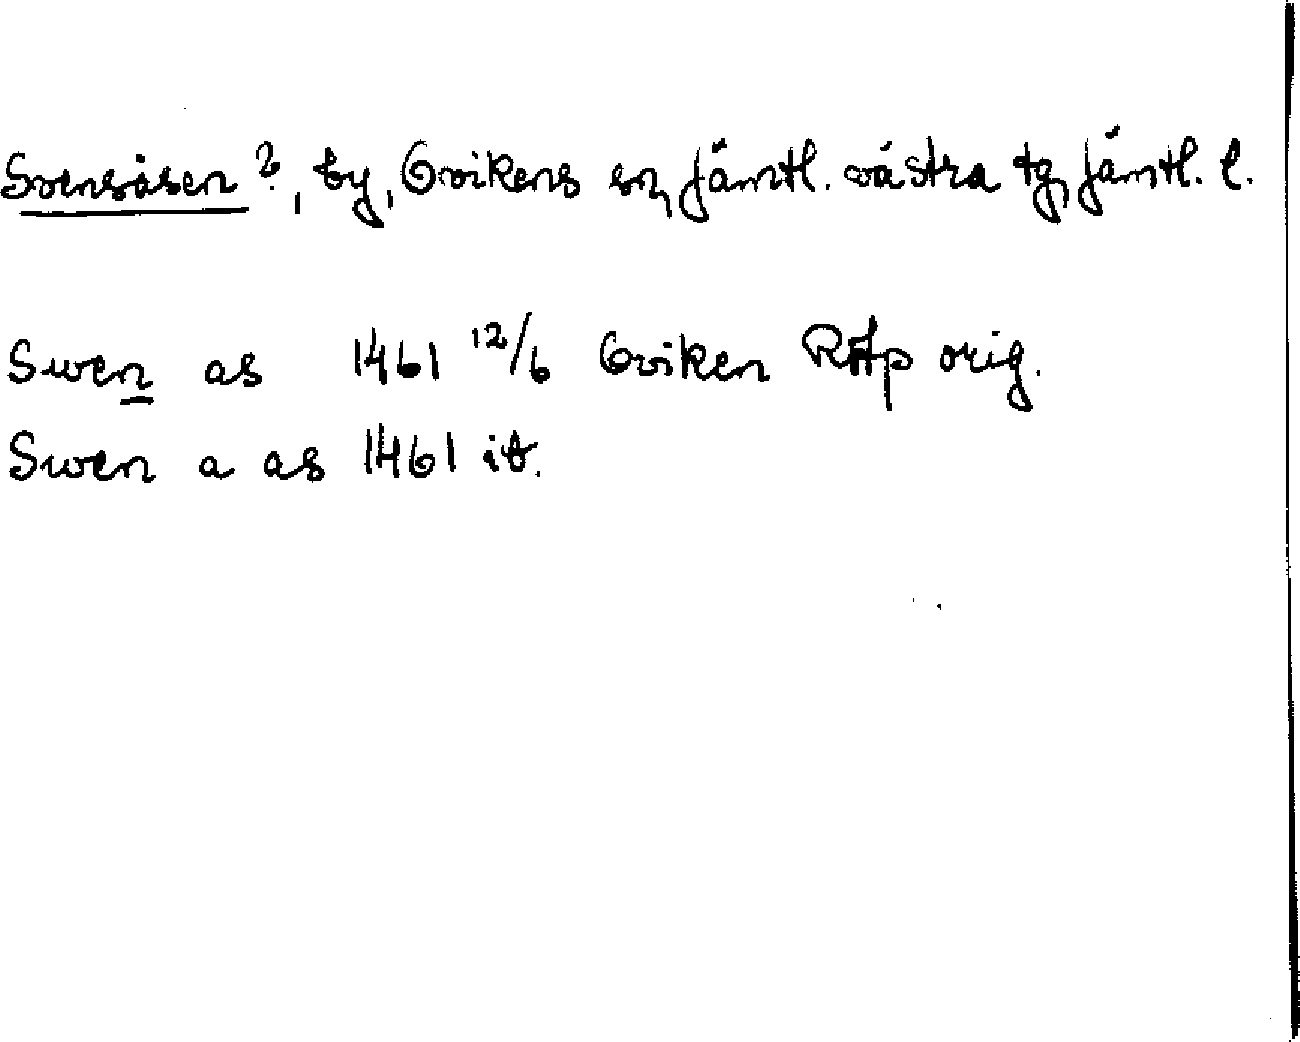 Svensåsen?, by, Ovikens sn, Jämtl. västra tg, Jämtl. l.
Swen as 1461 12/6 Oviken RAp orig.
Swen a as 1461 ib.